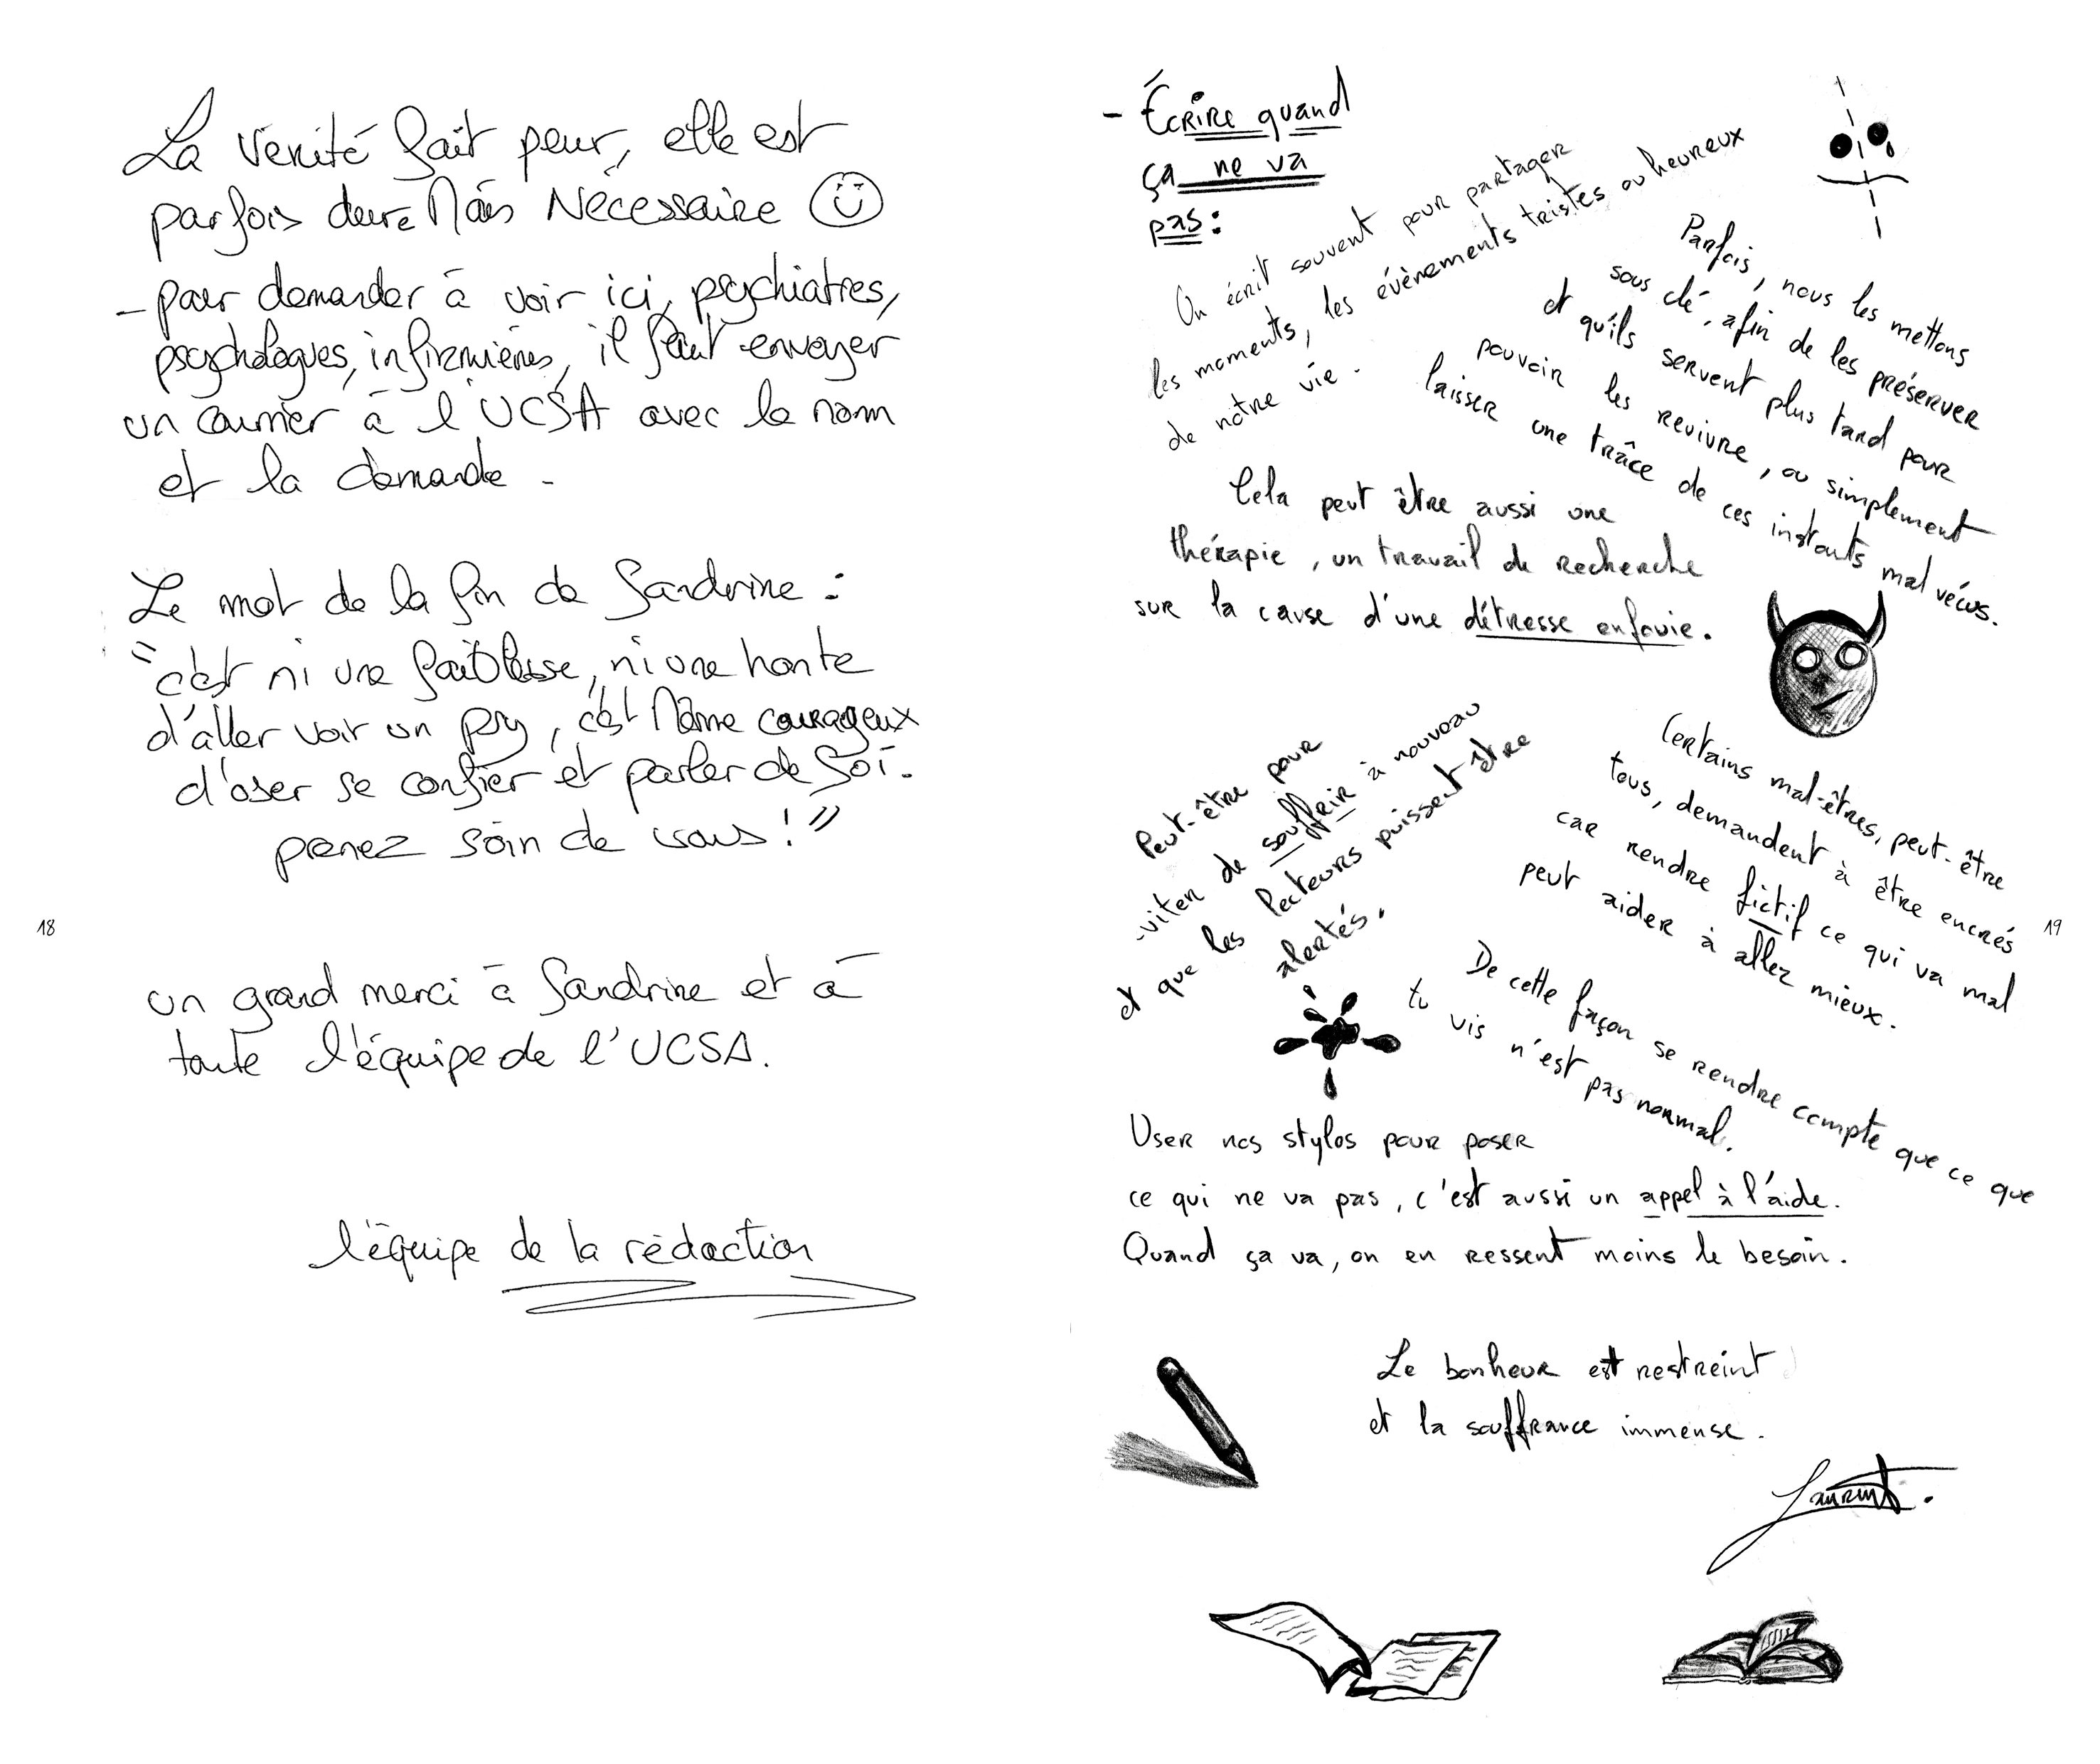 La vérité fait peur, elle est
parfois dure Mais Nécessaire
- pour demander à voir ici, psychiatres,
psychologues, infirmières, il faut envoyer
un courrier à l'UCSA avec le nom
et la demande -
Le mot de la fin de Sandrine :
"c'est ni une faiblesse, ni une honte
d'aller voir un psy, c'est Même courageux
d'oser se confier et parler de Soi.
prenez soin de vous !"
18
un grand merci à Sandrine et à
toute l'équipe de l'UCSA.
l'équipe de la rédaction
- Écrire quand
ça ne va
pas :
On écrit souvent pour partager
les moments, les évènements tristes ou heureux
de notre vie.
Parfois, nous les mettons
sous clé, afin de les préserver
et qu'ils servent plus tard pour
pouvoir les revivre, ou simplement
laisser une trâce de ces instants mal vécus.
Cela peut être aussi une
thérapie, un travail de recherche
sur la cause d'une détresse enfouie.
Peut-être pour
-viter de souffrir à nouveau
et que les lecteurs puissent être
alertés.
Certains mal-êtres, peut-être
tous, demandent à être encrés
car rendre fictif ce qui va mal
peut aider à allez mieux.
De cette façon se rendre compte que ce que
tu vis n'est pas normal.
19
User nos stylos pour poser
ce qui ne va pas, c'est aussi un appel à l'aide.
Quand ça va, on en ressent moins le besoin.
Le bonheur est restreint
et la souffrance immense.
Laurent.